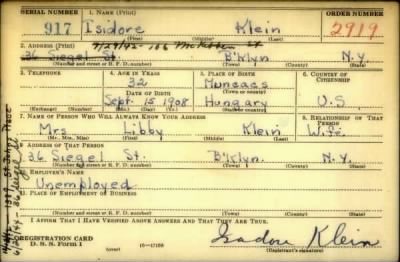 SERIAL NUMBER 1. NAME (Print) ORDER NUMBER
917 Isidore Klein 2919
(First) (Middle) (Last)
2. ADDRESS (Print) 9/29/42 - 186 St
36 Siegel St. B'klyn N.Y.
(Number and street or R. F. D. number) (Town) (County) (State)
3. TELEPHONE 4. AGE IN YEARS 5. PLACE OF BIRTH 6. COUNTRY OF CITIZENSHIP
32 Muncacs
DATE OF BIRTH (Town or county)
Sept. 15 1908 Hungary U.S.
(Exchange) (Number) (Mo.) (Day) (Yr.) (State or country)
7. NAME OF PERSON WHO WILL ALWAYS KNOW YOUR ADDRESS 8. RELATIONSHIP OF THAT PERSON
Mrs. Libby Klein Wife
(Mr., Mrs., Miss) (First) (Middle) (Last)
9. ADDRESS OF THAT PERSON
36 Siegel St. B'klyn. N.Y.
(Number and street or R. F. D. number) (Town) (County) (State)
10. EMPLOYER'S NAME
Unemployed
11. PLACE OF EMPLOYMENT OR BUSINESS
(Number and street or R. F. D. number) (Town) (County) (State)
I AFFIRM THAT I HAVE VERIFIED ABOVE ANSWERS AND THAT THEY ARE TRUE.
REGISTRATION CARD
D. S. S. Form 1 (over) 16-17105 Isadore Klein
(Registrant's signature)
36 Siegel St